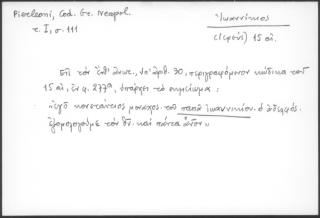 Pierleoni, Cod. Gr. Neapol.
τ. I, σ. 111
Ἰωαννίκιος
(ἱερεύς) 15 αἰ.
Ἐπὶ τοῦ ὑπ' ἀριθ. 30, περιγραφόμενον κώδικα τοῦ
15 αἰ, ἐν φ. 277α, ὑπάρχει τὸ σημείωμα:
«Ἐγὼ κονστάντιος μοναχος τοῦ παπᾶ ἰωαννικίου. ὁ ἀδερφός.
ἐξομολογοῦμε τὸν θν. καὶ πάντα